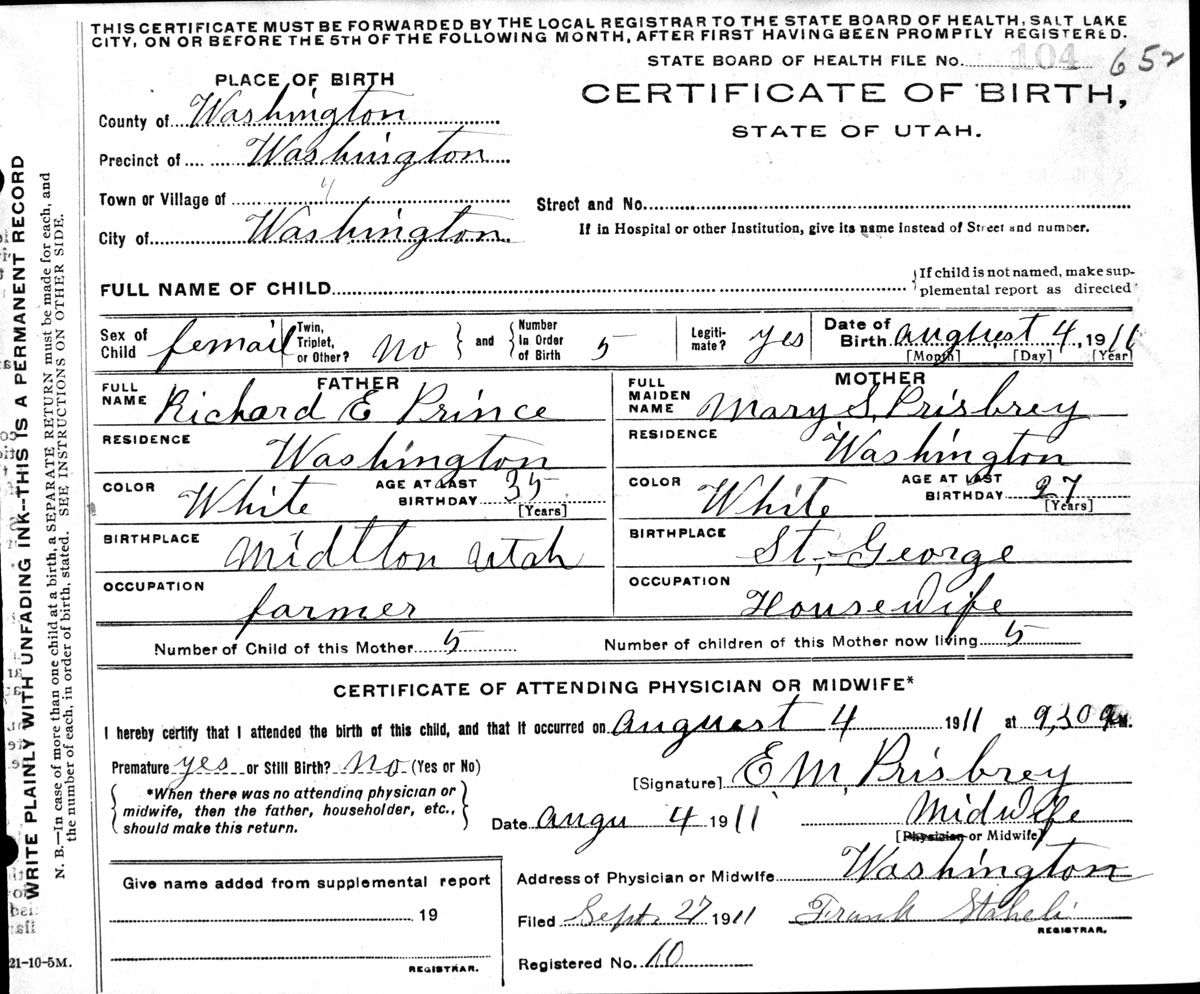 THIS CERTIFICATE MUST BE FORWARDED BY THE LOCAL REGISTRAR TO THE STATE BOARD OF HEALTH, SALT LAKE
CITY, ON OR BEFORE THE 5TH OF THE FOLLOWING MONTH, AFTER FIRST HAVING BEEN PROMPTLY REGISTERED.
STATE BOARD OF HEALTH FILE No. 104 652
PLACE OF BIRTH
CERTIFICATE OF BIRTH,
STATE OF UTAH.
County of Washington
Precinct of Washington
Town or Village of "
Street and No.
City of Washington
If in Hospital or other Institution, give its name instead of Street and number.
FULL NAME OF CHILD
{If child is not named, make sup-
plemental report as directed
Sex of Child femail Twin, Triplet, or Other? No } and { Number In Order of Birth 5 Legiti-mate? yes Date of Birth august 4, 1911
[Month] [Day] [Year]
FATHER
FULL NAME Richard E Prince
RESIDENCE Washington
COLOR White AGE AT LAST BIRTHDAY 35 [Years]
BIRTHPLACE Midlton Utah
OCCUPATION farmer
MOTHER
FULL MAIDEN NAME Mary S, Prisbrey
RESIDENCE Washington
COLOR White AGE AT LAST BIRTHDAY 27 [Years]
BIRTHPLACE St, George
OCCUPATION Housewife
Number of Child of this Mother 5 Number of children of this Mother now living 5
CERTIFICATE OF ATTENDING PHYSICIAN OR MIDWIFE*
I hereby certify that I attended the birth of this child, and that it occurred on auguest 4 1911 at 9,30 M.
Premature yes or Still Birth? No (Yes or No)
[Signature] E, M, Prisbrey
*When there was no attending physician or
midwife, then the father, householder, etc.,
should make this return.
Date augu 4 1911 Midwife
[Physician or Midwife]
Give name added from supplemental report
19
REGISTRAR.
Address of Physician or Midwife Washington
Filed Sept. 27 1911 Frank Staheli
REGISTRAR.
Registered No. 60
WRITE PLAINLY WITH UNFADING INK--THIS IS A PERMANENT RECORD
N. B.—In case of more than one child at a birth, a SEPARATE RETURN must be made for each, and
the number of each, in order of birth, stated. SEE INSTRUCTIONS ON OTHER SIDE.
21-10-5M.